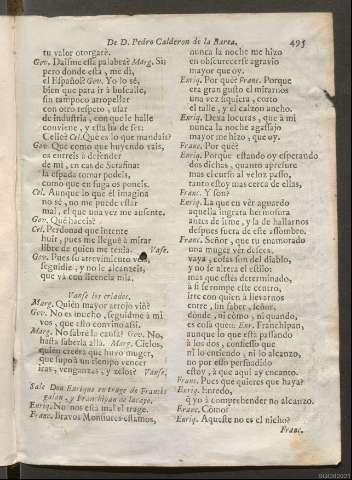 De D. Pedro Calderon de la Barca. 495
tu valor otorgarè.
Gov. Daisme essa palabra? Marg. Si;
pero donde està, me di,
el Español? Gov. Yo lo sè,
bien que para ir à buscalle,
sin tampoco atropellar
con otro respeto, usar
de industria, con que le halle
conviene, y esta ha de ser:
Celio? Cel. Què es lo que mandais?
Gov. Que como que huyendo vais,
os entreis à defender
de mi, en cas de Serafina:
la espada tomar podeis,
como que en fuga os poneis.
Cel. Aunque lo que el imagina
no sè, no me puede estar
mal, el que una vez me ausente.
Gov. Què haceis?
Cel. Perdonad que intente
huir, pues me lleguè à mirar
libre de quien me tenia. Vase.
Gov. Pues su atrevimiento veis,
seguidle, y no le alcanzeis,
que và con licencia mia.
Vanse los criados.
Marg. Quièn mayor arrojo viò?
Gov. No es mucho, seguidme à mi
vos, que esto convino assi.
Marg. No sabrè la causa? Gov. No,
hasta saberla allà. Marg. Cielos,
quièn creerà que huvo muger,
que supo à un tiempo vencer
iras, venganzas, y zelos? Vanse.
Sale Don Enrique en trage de Francès
galan, y Franchipan de lacayo.
Enriq. No nos està mal el trage.
Franc. Bravos Monsiures estamos,
nunca la noche me hizo
en obscurecerse agravio
mayor que oy.
Enriq. Por què? Franc. Porque
era gran gusto el mirarnos
una vez siquiera, corto
el talle, y el calzon ancho.
Enriq. Dexa locuras, que à mi
nunca la noche agassajo
mayor me hizo, que oy.
Franc. Por què?
Enriq. Porque estando oy esperando
dos dichas, quanto apresure
mas el curso al veloz passo,
tanto estoy mas cerca de ellas,
Franc. Y son?
Enriq. La que en vèr aguardo
aquella ingrata hermosura
antes de irme, y la de hallarnos
despues fuera de este assombro.
Franc. Señor, que tu enamorado
una muger vèr desees.
vaya, cosas son del diablo,
y no se altera el estilo:
mas que estès determinado,
à si se rompe este centro,
irte con quien à llevarnos
entre, sin saber, señor,
dònde, ni còmo, ni quando,
es cosa que:: Enr. Franchipan,
aunque lo que està passando
à los dos, confiesso que
ni lo entiendo, ni lo alcanzo,
no por esso persuadido
estoy, à que aqui ay encanto.
Franc. Pues què quieres que haya?
Enriq. Enredo,
q̃ yo à comprehender no alcanzo.
Franc. Còmo?
Enriq. Aqueste no es el nicho?
Franc.